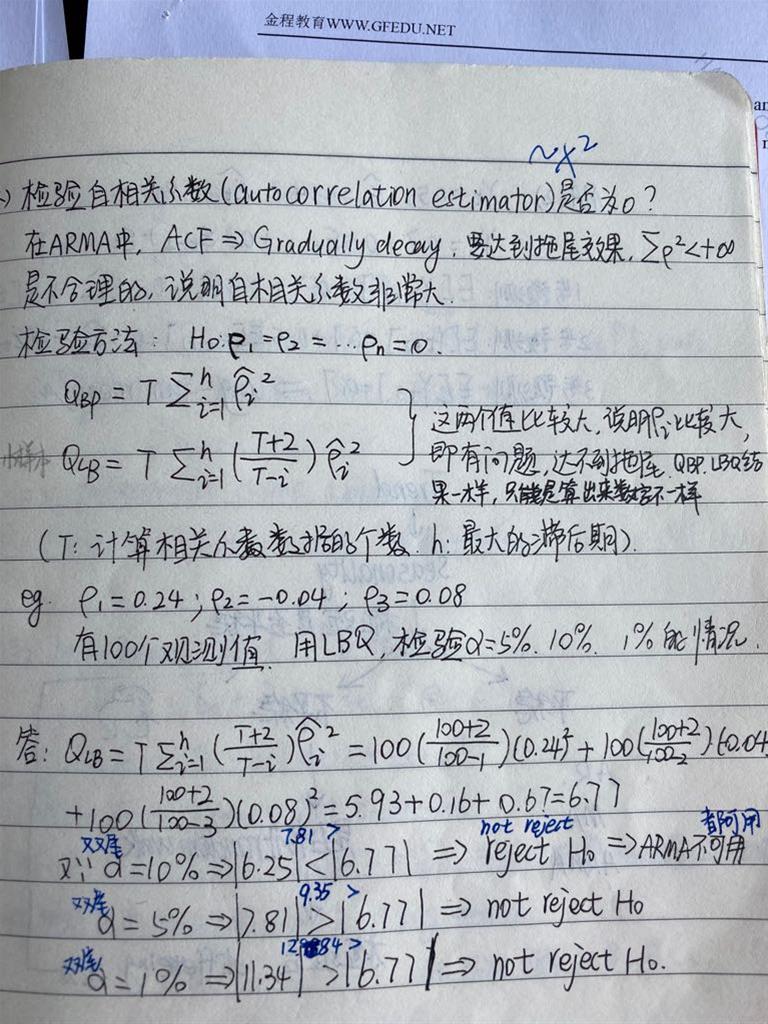 金程教育WWW.GFEDU.NET
~χ²
检验自相关系数(autocorrelation estimator)是否为0?
在ARMA中, ACF ⇒ Gradually decay, 要达到拖尾效果, Σρ²<+∞
是不合理的, 说明自相关系数非常大.
检验方法: H₀:ρ₁=ρ₂=…ρₙ=0.
Q_BP = T Σ_{i=1}^{h} ρ̂ᵢ²
小样本 Q_LB = T Σ_{i=1}^{h} (T+2/T-i) ρ̂ᵢ²
这两个值比较大, 说明ρᵢ比较大,
即有问题, 达不到拖尾. QBP, LBQ结
果一样, 只能是算出来数字不一样
(T: 计算相关系数数据的个数. h: 最大的滞后期).
eg. ρ₁=0.24; ρ₂=-0.04; ρ₃=0.08
有100个观测值. 用LBQ, 检验α=5%. 10%. 1%的情况.
答: Q_LB = T Σ_{i=1}^{h} (T+2/T-i) ρ̂ᵢ² = 100(100+2/100-1)(0.24)² + 100(100+2/100-2)(-0.04
+100(100+2/100-3)(0.08)² = 5.93+0.16+0.67=6.77
双尾 7.81 > not reject 都可用
又∵ α=10% ⇒ |6.25| < |6.77| ⇒ reject H₀ ⇒ ARMA不可用
双尾 9.35 >
α=5% ⇒ |7.81| > |6.77| ⇒ not reject H₀
双尾 12.84 >
α=1% ⇒ |11.34| > |6.77| ⇒ not reject H₀.